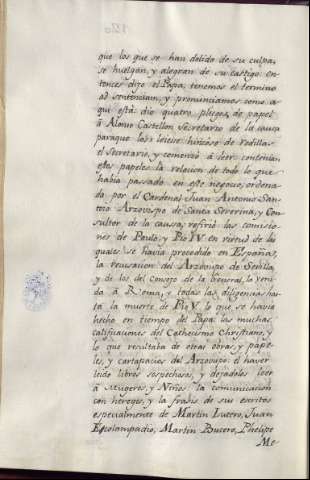 que los que se han dolido de su culpa,
se huelgan, y alegran de su castigo: en-
tonces dixo el Papa, tenemos el termino
ad sentenciam, y pronunciamos como a-
qui està: dio quatro pliegos de papel
à Alonso Castellon Secretario de la causa
paraque los leiese: hincose de rodillas
el Secretario, y comenzò à leer: contenian
estos papeles la relacion de todo lo que
habia passado en este negocio, ordena-
da por el Cardenal Juan Antonio San-
torio Arzovispo de Santa Severina, y Con-
sultor de la causa, refirio las comissio-
nes de Paulo, y Pio IV en virtud de las
quales se havia procedido en España,
la recusacion del Arzovispo de Sevilla,
y de los del consejo de la General, la veni-
da à Roma, y todas las diligencias has-
ta la muerte de Pio V. lo que se havia
hecho en tiempo del Papa: las muchas
calificaciones del Cathecismo Christiano, y
lo que resultaba de otras obras, y pape-
les, y cartapacios del Arzovispo: el haver
leido libros sospechosos, y dejadolos leer
à Mugeres, y Niños: la comunicacion
con hereges, y la frasis de sus escritos
especialmente de Martin Lutero, Juan
Ecolampadio, Martin Bucero, Phelipe
Me